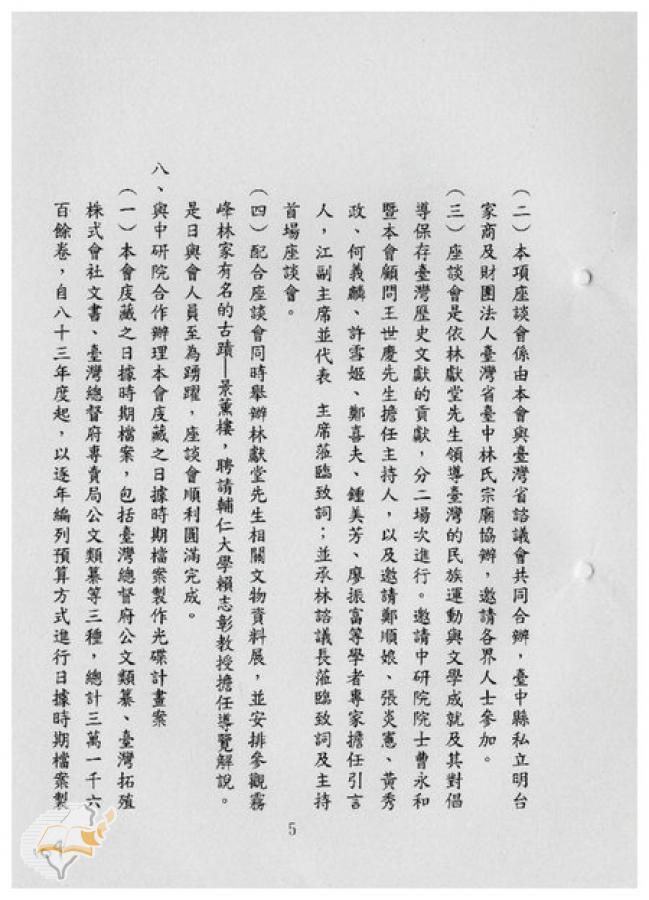 (二)本項座談會係由本會與臺灣省諮議會共同合辦，臺中縣私立明台
家商及財團法人臺灣省臺中林氏宗廟協辦，邀請各界人士參加。
(三)座談會是依林獻堂先生領導臺灣的民族運動與文學成就及其對倡
導保存臺灣歷史文獻的貢獻，分二場次進行。邀請中研院院士曹永和
暨本會顧問王世慶先生擔任主持人，以及邀請鄭順娘、張炎憲、黃秀
政、何義麟、許雪姬、鄭喜夫、鍾美芳、廖振富等學者專家擔任引言
人，江副主席並代表　主席蒞臨致詞；並承林諮議長蒞臨致詞及主持
首場座談會。
(四)配合座談會同時舉辦林獻堂先生相關文物資料展，並安排參觀霧
峰林家有名的古蹟—景薰樓，聘請輔仁大學賴志彰教授擔任導覽解說。
是日與會人員至為踴躍，座談會順利圓滿完成。
八、與中研院合作辦理本會庋藏之日據時期檔案製作光碟計畫案
(一)本會庋藏之日據時期檔案，包括臺灣總督府公文類纂、臺灣拓殖
株式會社文書、臺灣總督府專賣局公文類纂等三種，總計三萬一千六
百餘卷，自八十三年度起，以逐年編列預算方式進行日據時期檔案製
5